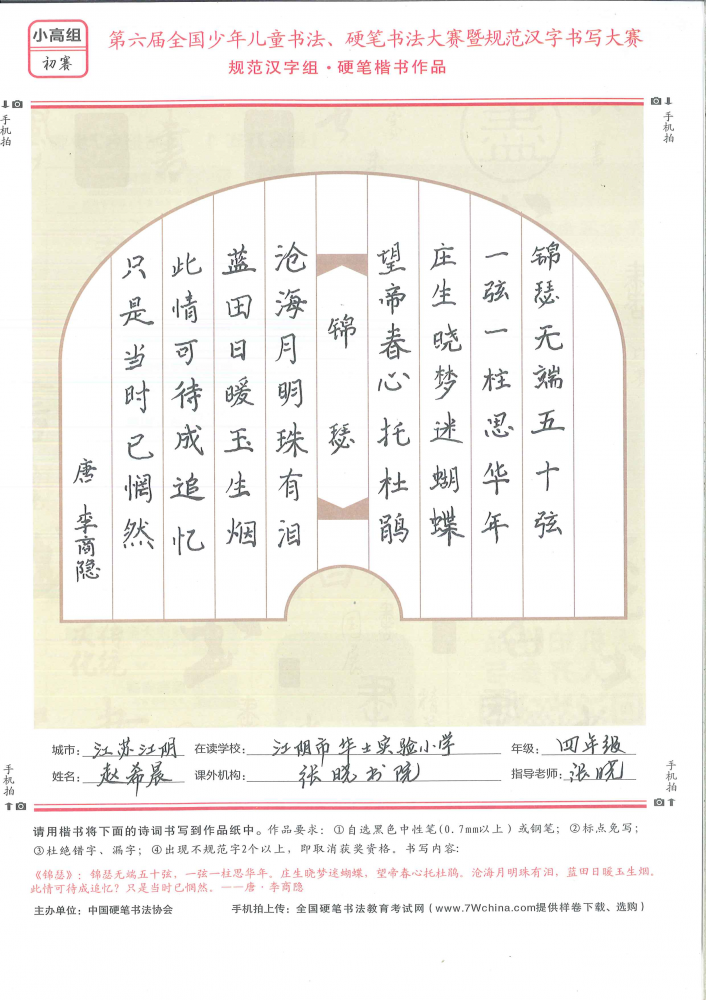 小高组
初赛
第六届全国少年儿童书法、硬笔书法大赛暨规范汉字书写大赛
规范汉字组·硬笔楷书作品
手机拍
手机拍
锦瑟无端五十弦
一弦一柱思华年
庄生晓梦迷蝴蝶
望帝春心托杜鹃
锦瑟
沧海月明珠有泪
蓝田日暖玉生烟
此情可待成追忆
只是当时已惘然
唐 李商隐
城市：江苏江阴 在读学校：江阴市华士实验小学 年级：四年级
姓名：赵希晨 课外机构：张晓书院 指导老师：张晓
手机拍
手机拍
请用楷书将下面的诗词书写到作品纸中。作品要求：①自选黑色中性笔(0.7mm以上）或钢笔；②标点免写；
③杜绝错字、漏字；④出现不规范字2个以上，即取消获奖资格。书写内容：
《锦瑟》：锦瑟无端五十弦，一弦一柱思华年。庄生晓梦迷蝴蝶，望帝春心托杜鹃。沧海月明珠有泪，蓝田日暖玉生烟。
此情可待成追忆？只是当时已惘然。——唐·李商隐
主办单位：中国硬笔书法协会 手机拍上传：全国硬笔书法教育考试网（www.7Wchina.com提供样卷下载、选购）